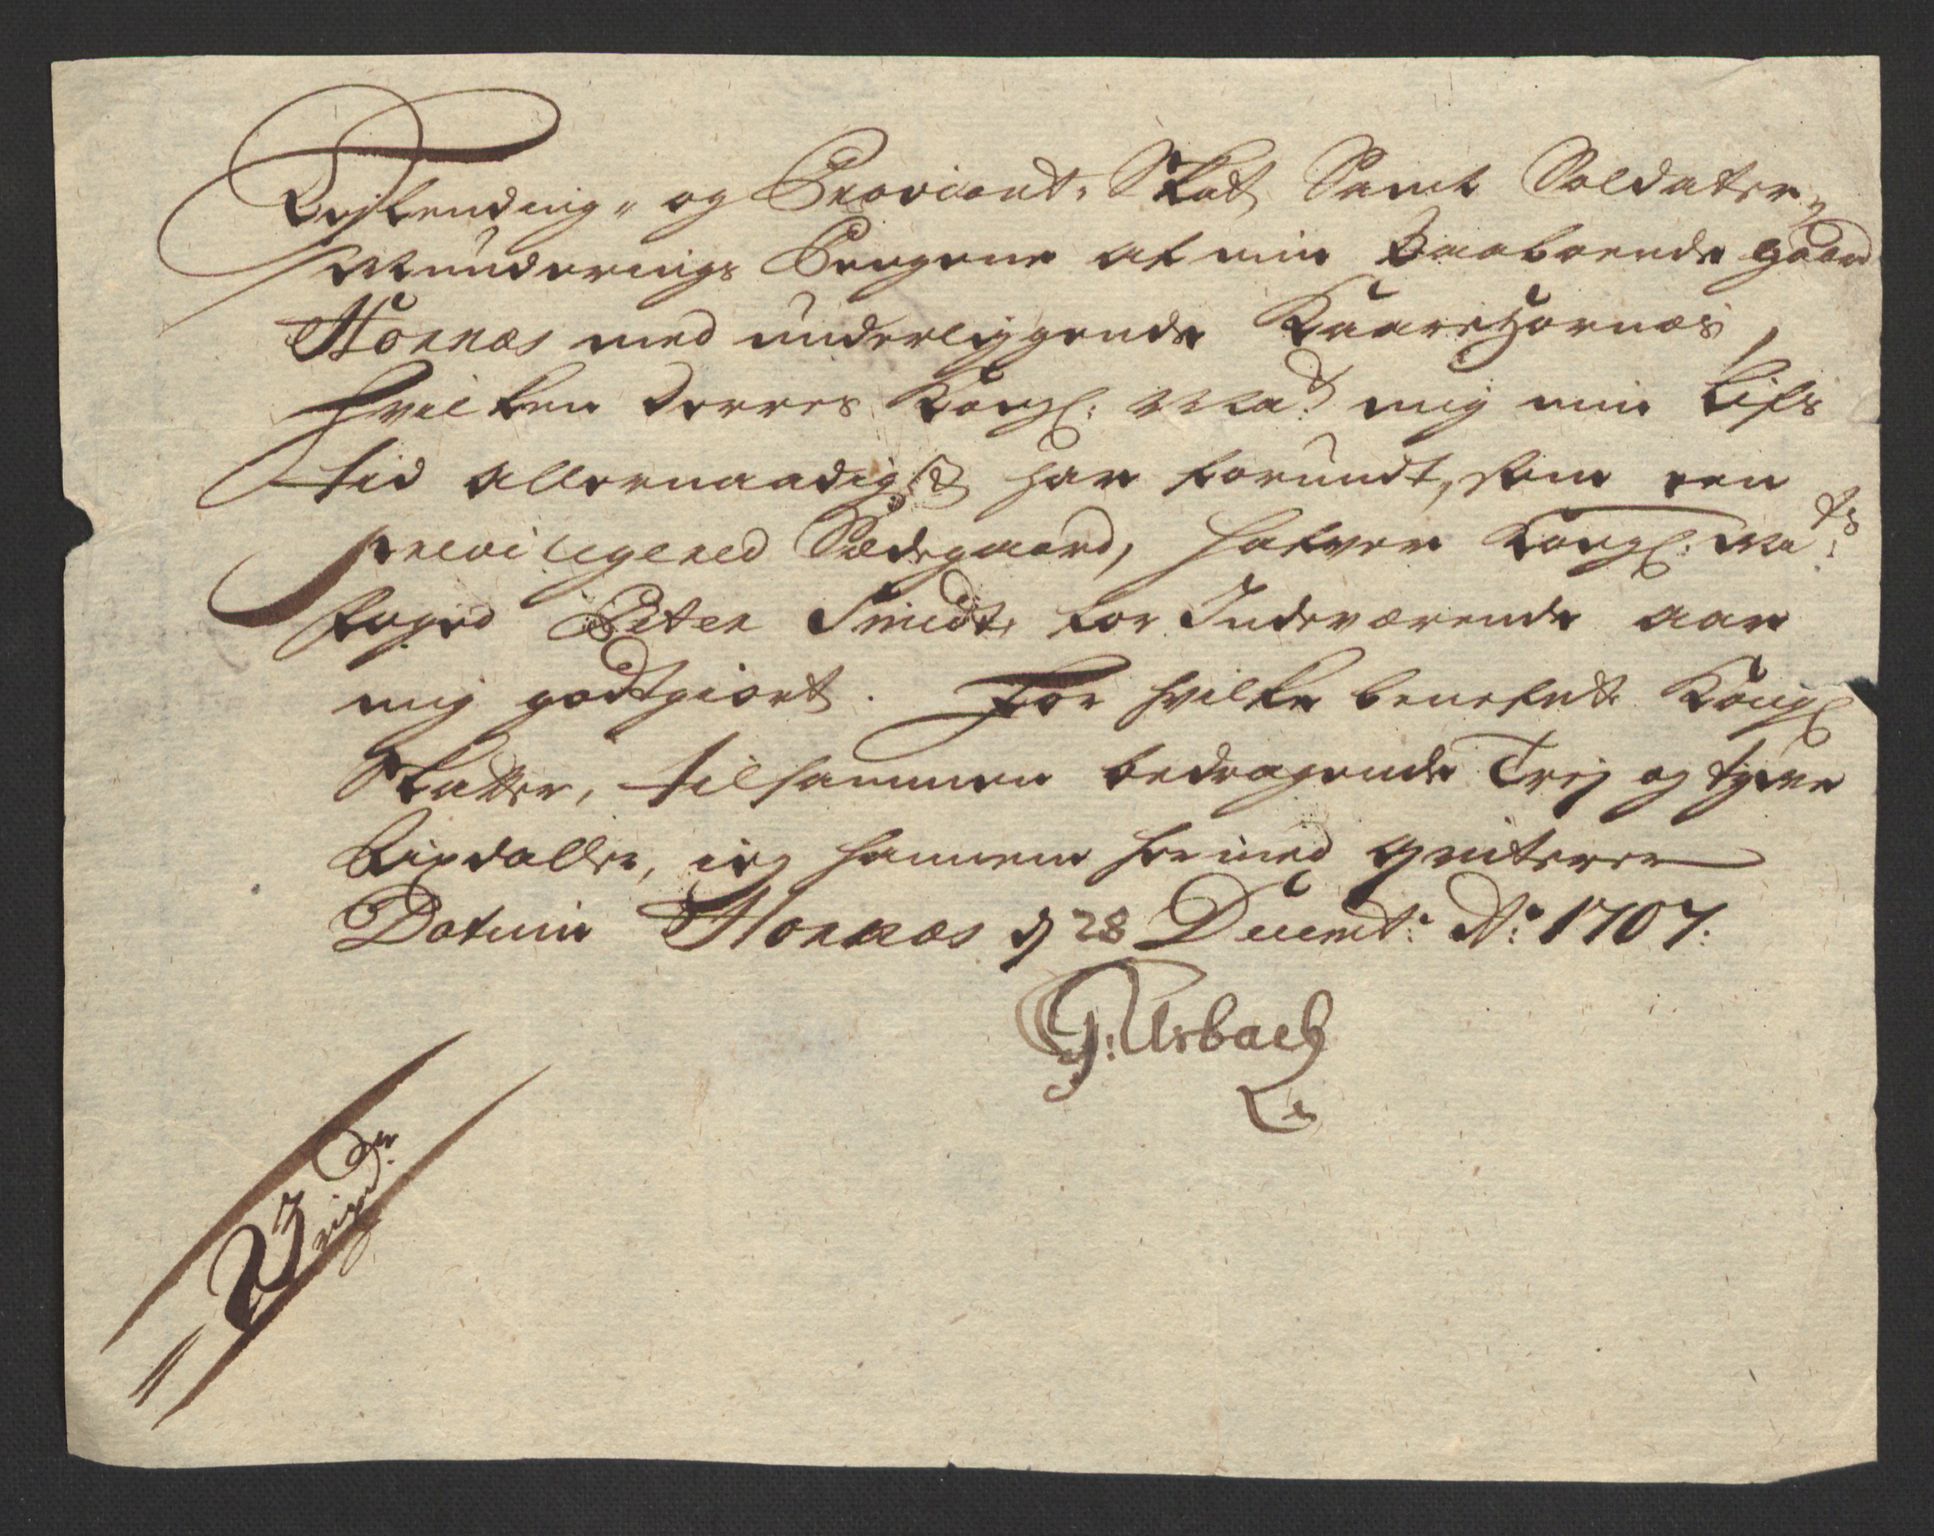 Leylending- og Proviant-Skat Samt Soldater-
Munderings Pengene af min Paaboende gaard
Hornæs med underliggende Kaarehornæs,
hvilken Deres Kongl: Ma.t mig min Lifs
tid allernaadigst har forundt, som een
previligered Sædegaard, hafver Kongl: Ma:ts
foged Piter Smidt for Indeværende aar
mig godtgiort. For hvilke benefict Kongl
Skatter, tilsammen bedragende Trej og tyve
Rixdaller, jeg hannem hermed qviterer
Datum Hornæs d 28 Decemb: Ao: 1707:
G: Urbach
23 rixdr